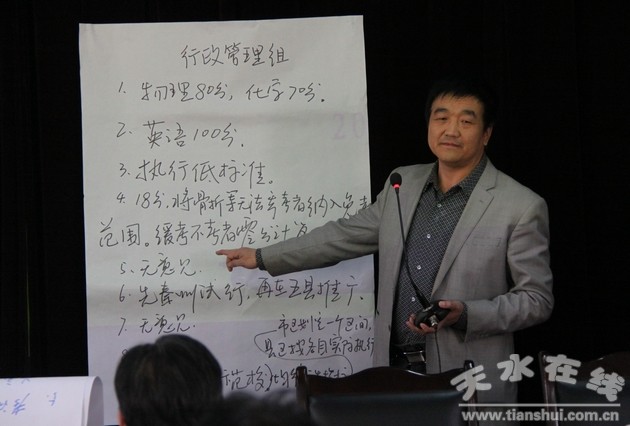 行政管理组
1. 物理80分，化学70分。
2. 英语100分。
3. 执行低标准。
4. 18分，将骨折等无法参考者纳入免考
范围。缓考不考者零分计算
5. 无意见.
6. 先秦州试行，再在五县推广.
7. 无意见
市区划定一个区间，
县区按各自实际执行
范校
天水在线
www.tianshui.com.cn